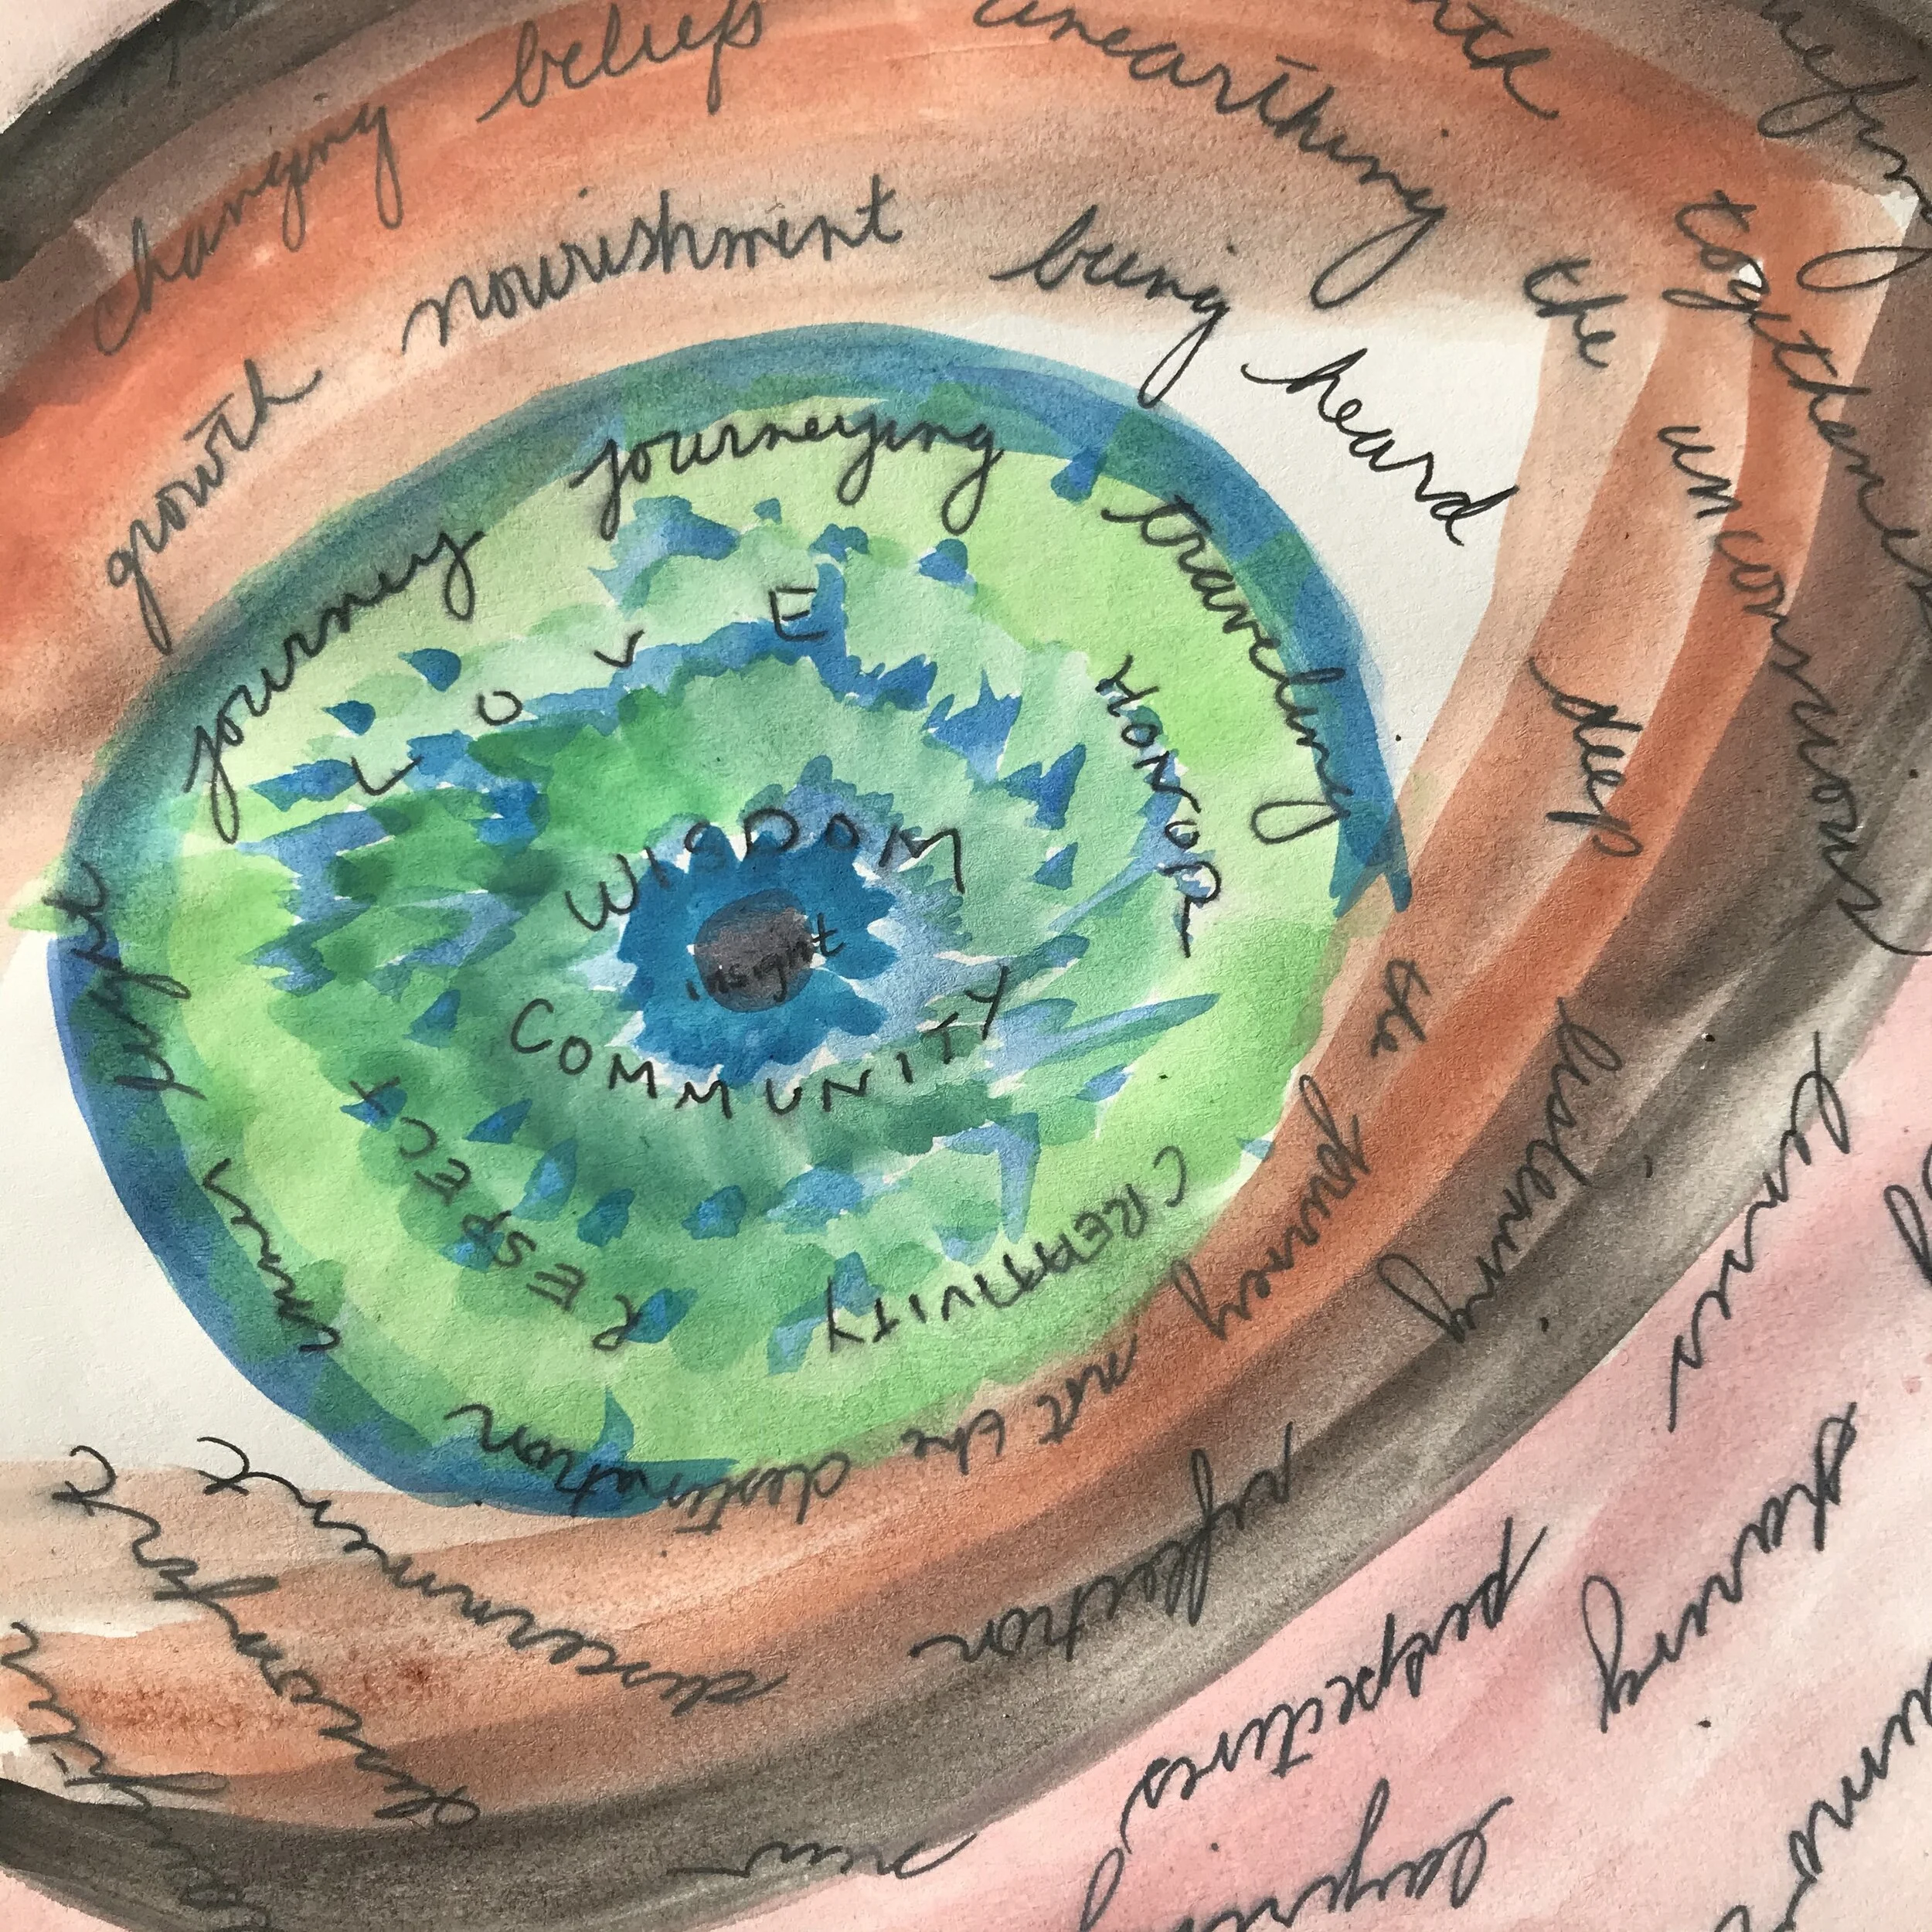 changing beliefs
unearthing the unconscious
togetherness
growth nourishment being heard
deep listening
journey journeying traveling
the journey not the destination
inner light
LOVE
HONOR
WISDOM
insight
COMMUNITY
RESPECT
CREATIVITY
discernment
reflection
discomfort
lenses
new perspectives
sharing